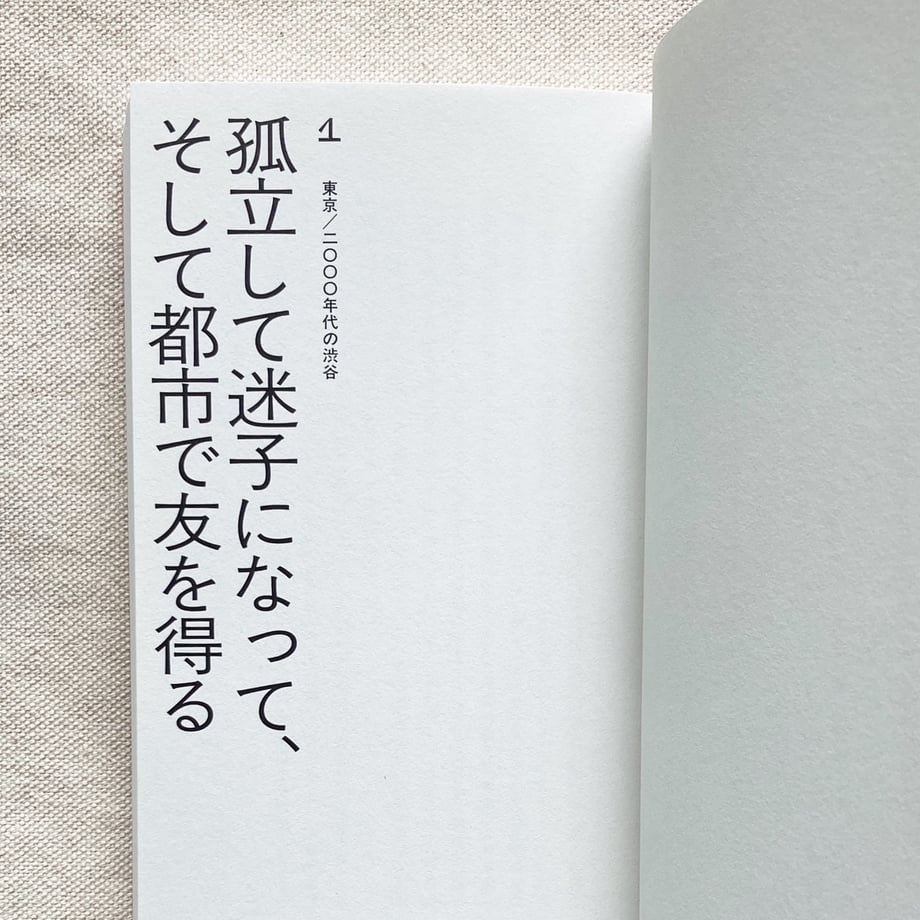 1
東京／二〇〇〇年代の渋谷
孤立して迷子になって、
そして都市で友を得る